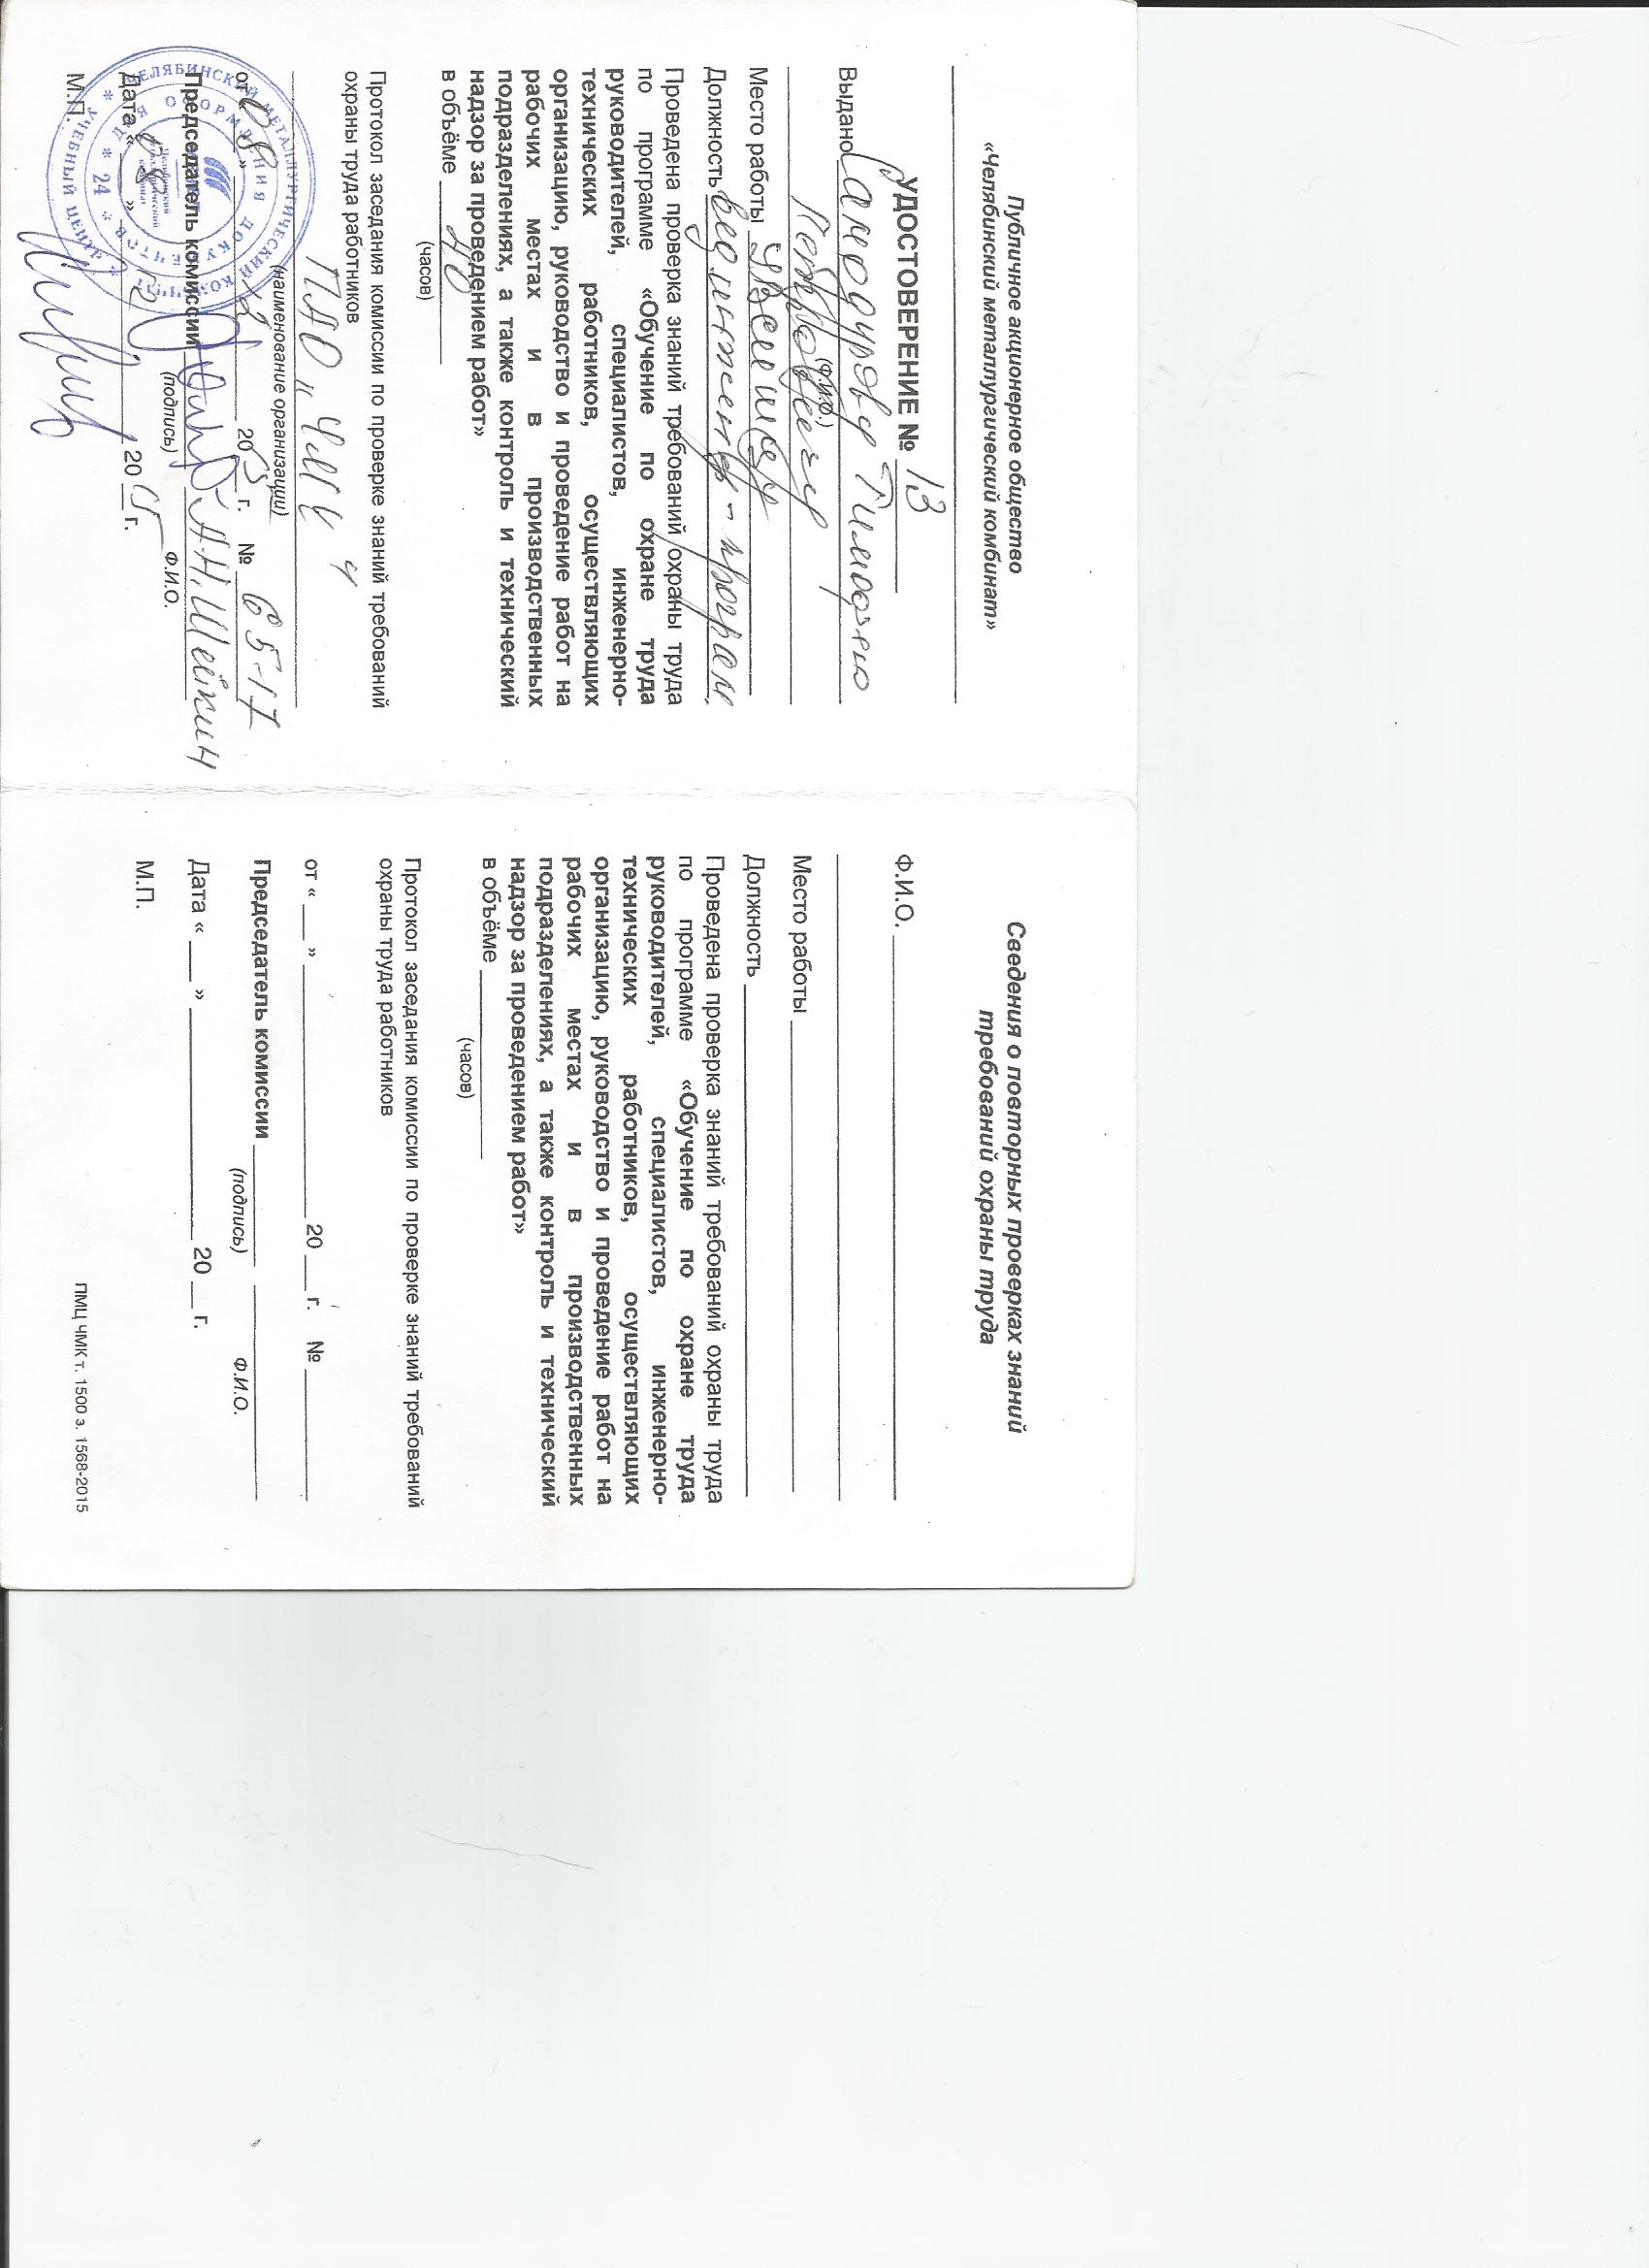 Публичное акционерное общество
«Челябинский металлургический комбинат»
УДОСТОВЕРЕНИЕ № 13
Выдано Тимофею
(Ф.И.О.)
Петровичу
Место работы
Должность вед. инженер-програм.
Проведена проверка знаний требований охраны труда
по программе «Обучение по охране труда
руководителей, специалистов, инженерно-
технических работников, осуществляющих
организацию, руководство и проведение работ на
рабочих местах и в производственных
подразделениях, а также контроль и технический
надзор за проведением работ»
в объёме 40
(часов)
Протокол заседания комиссии по проверке знаний требований
охраны труда работников
ПАО "ЧМК"
(наименование организации)
от « 08 » 12 2015 г. № 65-17
Председатель комиссии А.Н. Шейкин
(подпись) Ф.И.О.
Дата « 08 » 12 2015 г.
М.П.
ЧЕЛЯБИНСКИЙ МЕТАЛЛУРГИЧЕСКИЙ КОМБИНАТ
* УЧЕБНЫЙ ЦЕНТР *
ДЛЯ ОФОРМЛЕНИЯ ДОКУМЕНТОВ
* 24 *
Челябинский
металлургический
комбинат
Сведения о повторных проверках знаний
требований охраны труда
Ф.И.О.
Место работы
Должность
Проведена проверка знаний требований охраны труда
по программе «Обучение по охране труда
руководителей, специалистов, инженерно-
технических работников, осуществляющих
организацию, руководство и проведение работ на
рабочих местах и в производственных
подразделениях, а также контроль и технический
надзор за проведением работ»
в объёме
(часов)
Протокол заседания комиссии по проверке знаний требований
охраны труда работников
от « » 20 г. №
Председатель комиссии
(подпись) Ф.И.О.
Дата « » 20 г.
М.П.
ПМЦ ЧМК т. 1500 з. 1568-2015